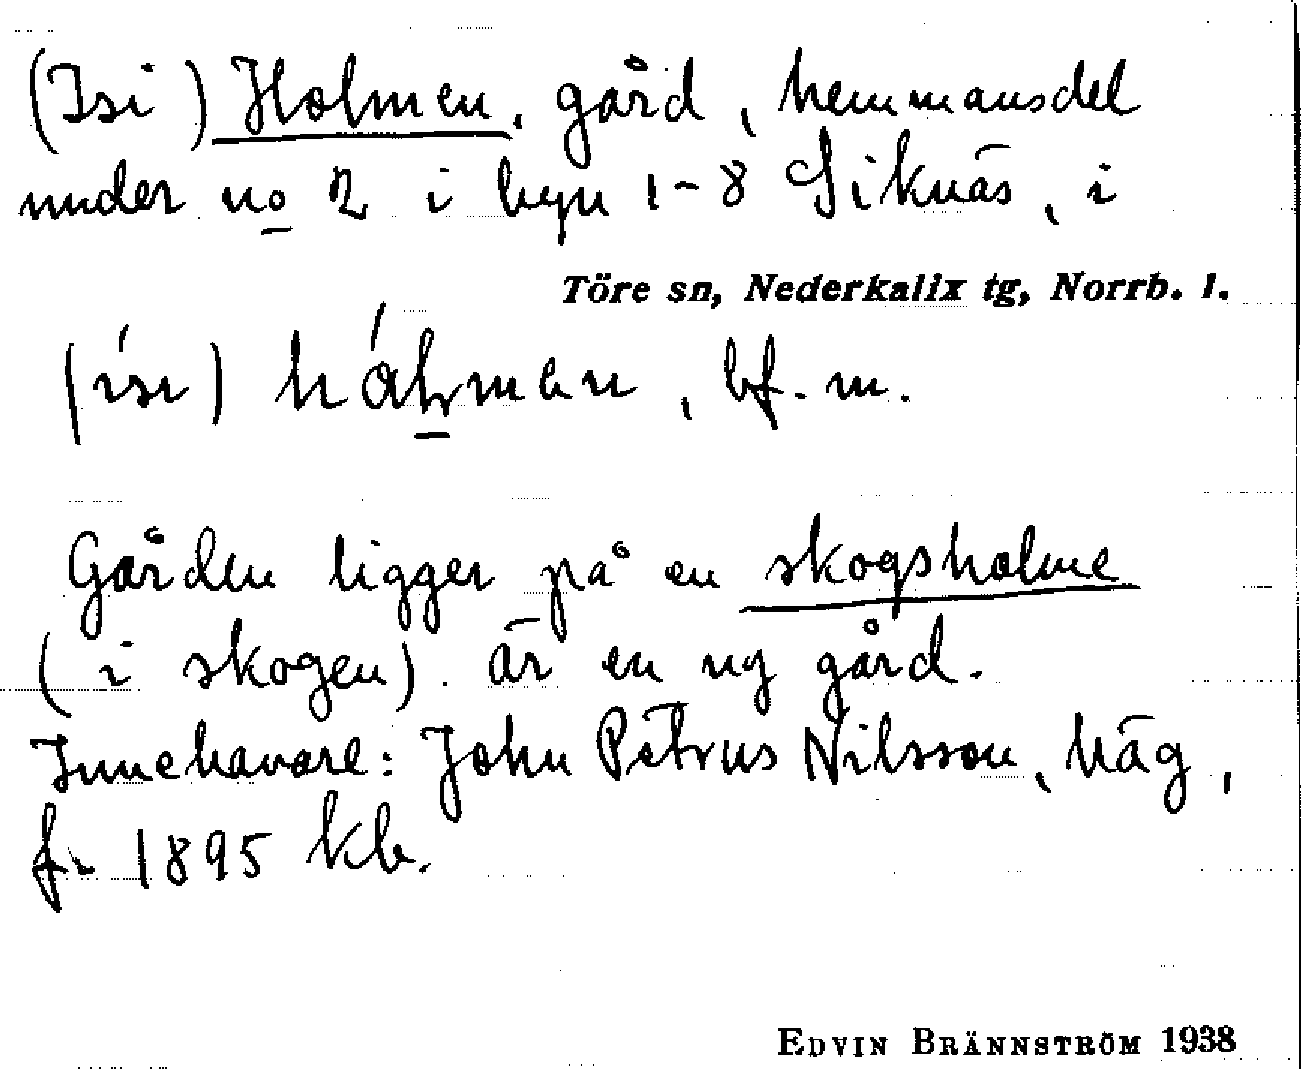 (Isi) Holmen, gård, hemmansdel
under no 2 i byn 1-8 Siknäs, i
Töre sn, Nederkalix tg, Norrb. l.
(ísı) hálmen, bf. m.
Gården ligger på en skogsholme
(i skogen). är en ny gård.
Innehavare: John Petrus Nilsson, häg,
f. 1895 kb.
EDVIN BRÄNNSTRÖM 1938